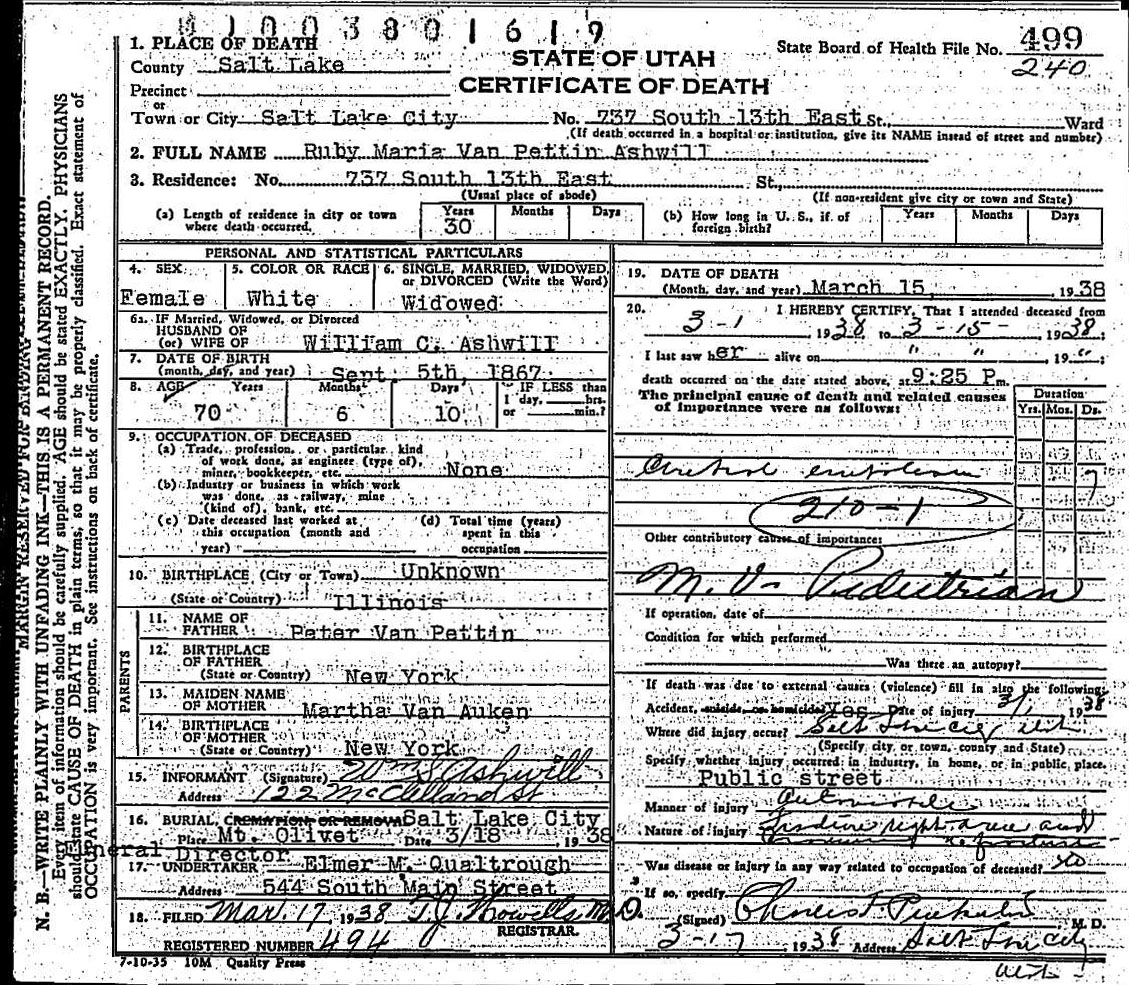 1003801619
1. PLACE OF DEATH
STATE OF UTAH
CERTIFICATE OF DEATH
State Board of Health File No. 499
240
County Salt Lake
Precinct
or
Town or City Salt Lake City No. 737 South 13th East St., Ward
(If death occurred in a hospital or institution, give its NAME instead of street and number)
2. FULL NAME Ruby Maria Van Pettin Ashwill
3. Residence: No. 737 South 13th East St.,
(Usual place of abode) (If non-resident give city or town and State)
(a) Length of residence in city or town where death occurred. Years 30 Months Days
(b) How long in U. S., if of foreign birth? Years Months Days
PERSONAL AND STATISTICAL PARTICULARS
4. SEX Female
5. COLOR OR RACE White
6. SINGLE, MARRIED, WIDOWED, or DIVORCED (Write the Word) Widowed
6a. IF Married, Widowed, or Divorced
HUSBAND OF
(or) WIFE OF William C. Ashwill
7. DATE OF BIRTH
(month, day, and year) Sept 5th, 1867
8. AGE Years 70 Months 6 Days 10 IF LESS than 1 day, hrs. or min.?
9. OCCUPATION OF DECEASED
(a) Trade, profession, or particular kind
of work done, as engineer (type of),
miner, bookkeeper, etc. None
(b) Industry or business in which work
was done, as railway, mine
(kind of), bank, etc.
(c) Date deceased last worked at this occupation (month and year)
(d) Total time (years) spent in this occupation
10. BIRTHPLACE (City or Town) Unknown
(State or Country) Illinois
PARENTS
11. NAME OF FATHER Peter Van Pettin
12. BIRTHPLACE OF FATHER
(State or Country) New York
13. MAIDEN NAME OF MOTHER Martha Van Auken
14. BIRTHPLACE OF MOTHER
(State or Country) New York
15. INFORMANT (Signature) Wm S Ashwill
Address 122 McClelland St
16. BURIAL, CREMATION OR REMOVAL Salt Lake City
Place Mt. Olivet Date 3/18 1938
eneral Director
17. UNDERTAKER Elmer M. Qualtrough
Address 544 South Main Street
18. FILED Mar. 17, 1938 T. J. Howells, M.D.
REGISTRAR.
REGISTERED NUMBER 494
7-10-35 10M Quality Press
19. DATE OF DEATH
(Month, day, and year) March 15, 1938
20. I HEREBY CERTIFY, That I attended deceased from
3-1 1938 to 3-15- 1938;
I last saw her alive on " " 19 ";
death occurred on the date stated above, at 9:25 P m.
The principal cause of death and related causes of importance were as follows:
Duration
Yrs. Mos. Ds.
embolism 7
210-1
Other contributory causes of importance:
M. V- Pedestrian
If operation, date of
Condition for which performed
Was there an autopsy?
If death was due to external causes (violence) fill in also the following:
Accident, suicide, or homicide? Yes Date of injury 3/1 1938
Where did injury occur? Salt Lake City Utah
(Specify city or town, county and State)
Specify whether injury occurred in industry, in home, or in public place.
Public street
Manner of injury Automobile
Nature of injury Fracture right arm and
Was disease or injury in any way related to occupation of deceased? no
If so, specify
(Signed) M. D.
3-17 1938 Address Salt Lake City
Utah
N. B.—WRITE PLAINLY WITH UNFADING INK—THIS IS A PERMANENT RECORD.
Every item of information should be carefully supplied. AGE should be stated EXACTLY. PHYSICIANS
should state CAUSE OF DEATH in plain terms, so that it may be properly classified. Exact statement of
OCCUPATION is very important. See instructions on back of certificate.
MARGIN RESERVED FOR BINDING